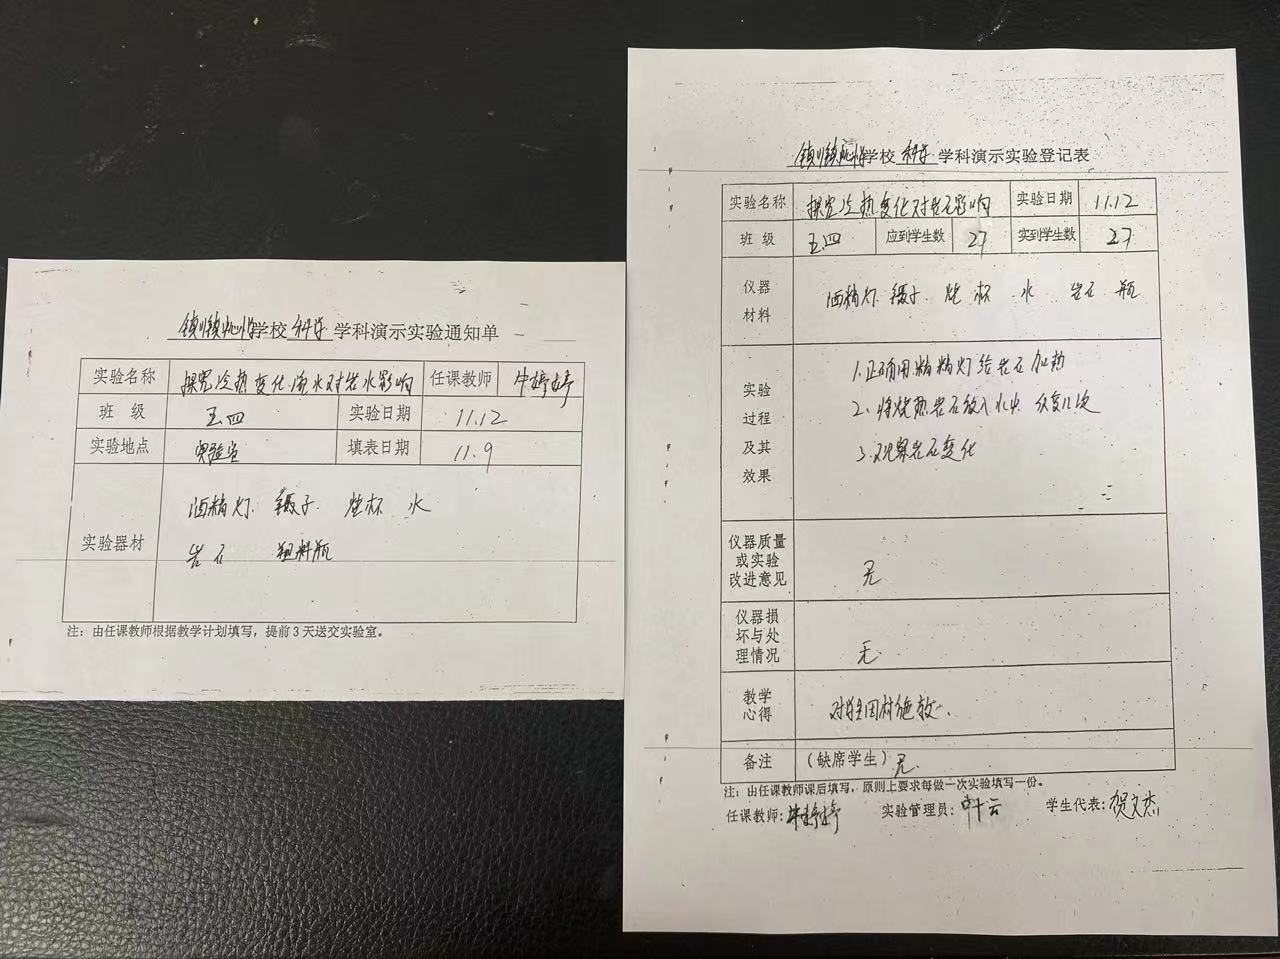 学校 科学 学科演示实验通知单
实验名称 探究冷热变化、流水对岩水影响 任课教师 婷婷
班 级 五四 实验日期 11.12
实验地点 实验室 填表日期 11.9
实验器材
酒精灯 镊子 烧杯 水
岩石 塑料瓶
注：由任课教师根据教学计划填写，提前3天送交实验室。
学校 科学 学科演示实验登记表
实验名称 探究冷热变化对岩石影响 实验日期 11.12
班 级 五四 应到学生数 27 实到学生数 27
仪器
材料
酒精灯 镊子 烧杯 水 岩石 瓶
实验
过程
及其
效果
1.正确用精精灯给岩石加热
2、将烧热岩石放入水中 反复几次
3.观察岩石变化
仪器质量
或实验
改进意见
无
仪器损
坏与处
理情况
无.
教学
心得
对性因材施教.
备注 (缺席学生) 无.
注：由任课教师课后填写，原则上要求每做一次实验填写一份。
任课教师: 婷婷 实验管理员: 学生代表: 贺文杰